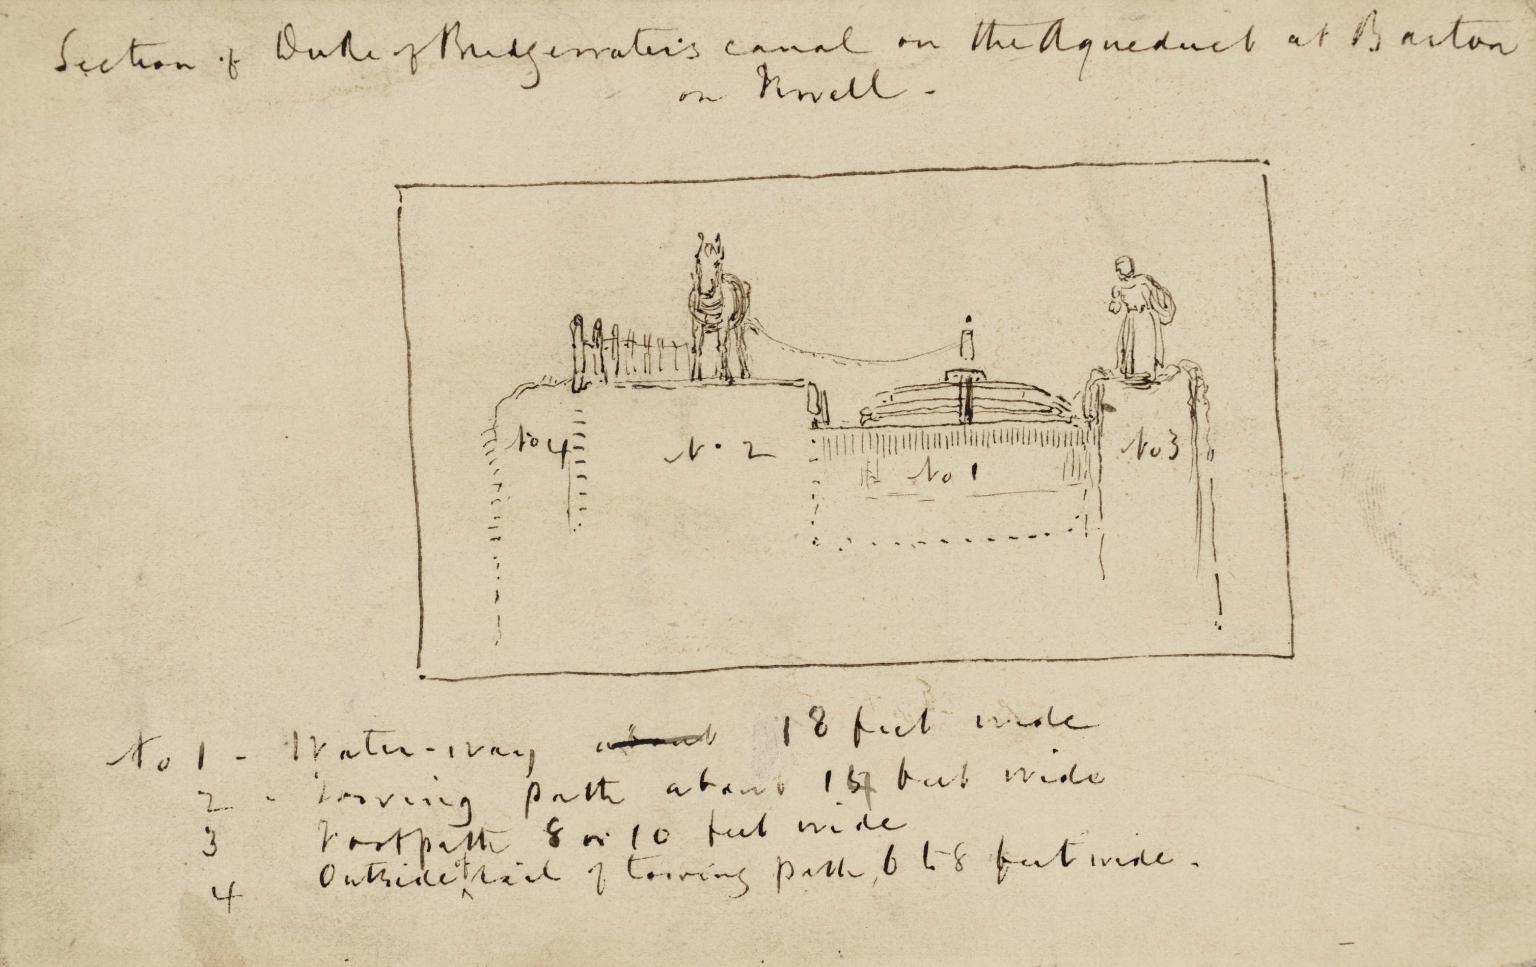 Section of Duke of Bridgewater's canal on the Aqueduct at Barton
on Irwell -
No 4
No 2
No 1
No 3
No 1 - Water-way about 18 feet wide
2 - Towing path about 15 feet wide
3 Footpath 8 or 10 feet wide
4 Outside of rail of towing path, 6 to 8 feet wide.